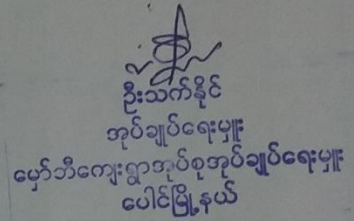 ဦးသက်နိုင်
အုပ်ချုပ်ရေးမှူး
မှော်ဘီကျေးရွာအုပ်စုအုပ်ချုပ်ရေးမှူး
ပေါင်မြို့နယ်